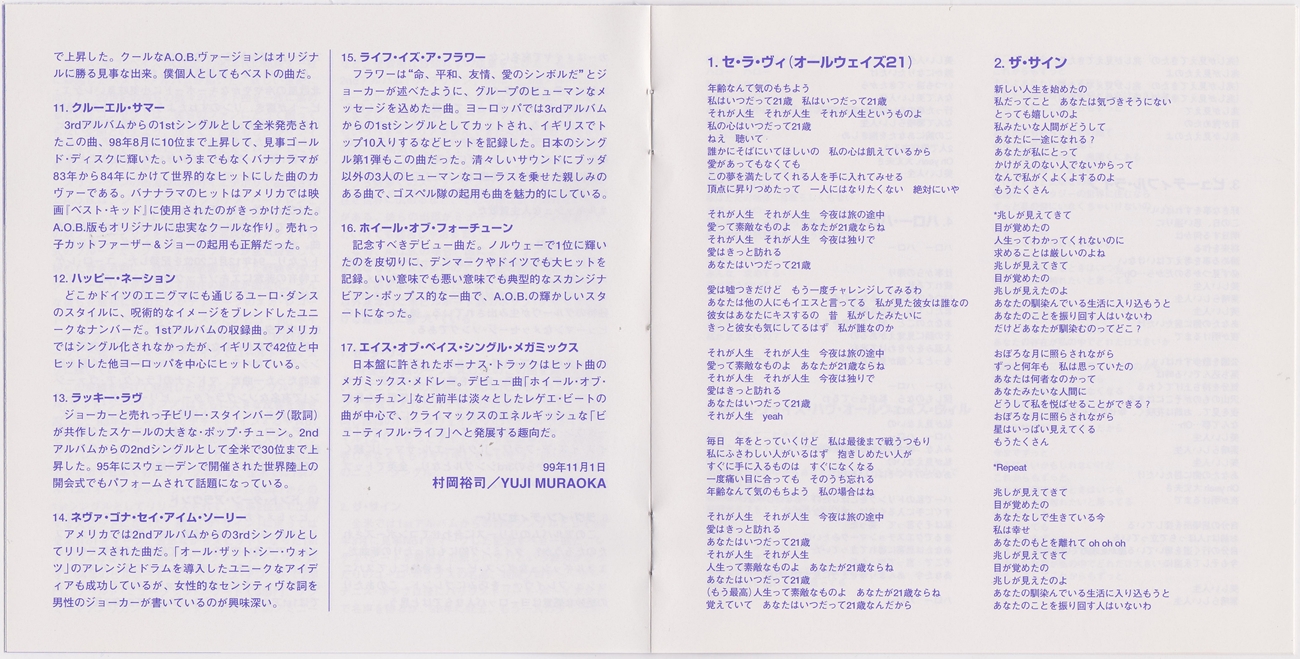 で上昇した。クールなA.O.B.ヴァージョンはオリジナ
ルに勝る見事な出来。僕個人としてもベストの曲だ。
11. クルーエル・サマー
3rdアルバムからの1stシングルとして全米発売され
たこの曲、98年8月に10位まで上昇して、見事ゴール
ド・ディスクに輝いた。いうまでもなくバナナラマが
83年から84年にかけて世界的なヒットにした曲のカ
ヴァーである。バナナラマのヒットはアメリカでは映
画『ベスト・キッド』に使用されたのがきっかけだった。
A.O.B.版もオリジナルに忠実なクールな作り。売れっ
子カットファーザー＆ジョーの起用も正解だった。
12. ハッピー・ネーション
どこかドイツのエニグマにも通じるユーロ・ダンス
のスタイルに、呪術的なイメージをブレンドしたユニ
ークなナンバーだ。1stアルバムの収録曲。アメリカ
ではシングル化されなかったが、イギリスで42位と中
ヒットした他ヨーロッパを中心にヒットしている。
13. ラッキー・ラヴ
ジョーカーと売れっ子ビリー・スタインバーグ（歌詞）
が共作したスケールの大きな・ポップ・チューン。2nd
アルバムからの2ndシングルとして全米で30位まで上
昇した。95年にスウェーデンで開催された世界陸上の
開会式でもパフォームされて話題になっている。
14. ネヴァ・ゴナ・セイ・アイム・ソーリー
アメリカでは2ndアルバムからの3rdシングルとし
てリリースされた曲だ。「オール・ザット・シー・ウォン
ツ」のアレンジとドラムを導入したユニークなアイデ
ィアも成功しているが、女性的なセンシティヴな詞を
男性のジョーカーが書いているのが興味深い。
15. ライフ・イズ・ア・フラワー
フラワーは“命、平和、友情、愛のシンボルだ”とジ
ョーカーが述べたように、グループのヒューマンなメ
ッセージを込めた一曲。ヨーロッパでは3rdアルバム
からの1stシングルとしてカットされ、イギリスでト
ップ10入りするなどヒットを記録した。日本のシング
ル第1弾もこの曲だった。清々しいサウンドにブッダ
以外の3人のヒューマンなコーラスを乗せた親しみの
ある曲で、ゴスペル隊の起用も曲を魅力的にしている。
16. ホイール・オブ・フォーチューン
記念すべきデビュー曲だ。ノルウェーで1位に輝い
たのを皮切りに、デンマークやドイツでも大ヒットを
記録。いい意味でも悪い意味でも典型的なスカンジナ
ビアン・ポップス的な一曲で、A.O.B.の輝かしいスタ
ートになった。
17. エイス・オブ・ベイス・シングル・メガミックス
日本盤に許されたボーナス・トラックはヒット曲の
メガミックス・メドレー。デビュー曲「ホイール・オブ・
フォーチュン」など前半は淡々としたレゲエ・ビートの
曲が中心で、クライマックスのエネルギッシュな「ビ
ューティフル・ライフ」へと発展する趣向だ。
99年11月1日
村岡裕司／YUJI MURAOKA
1. セ・ラ・ヴィ（オールウェイズ21）
年齢なんて気のもちよう
私はいつだって21歳　私はいつだって21歳
それが人生　それが人生　それが人生というものよ
私の心はいつだって21歳
ねえ　聴いて
誰かにそばにいてほしいの　私の心は飢えているから
愛があってもなくても
この夢を満たしてくれる人を手に入れてみせる
頂点に昇りつめたって　一人にはなりたくない　絶対にいや
それが人生　それが人生　今夜は旅の途中
愛って素敵なものよ　あなたが21歳ならね
それが人生　それが人生　今夜は独りで
愛はきっと訪れる
あなたはいつだって21歳
愛は嘘つきだけど　もう一度チャレンジしてみるわ
あなたは他の人にもイエスと言ってる　私が見た彼女は誰なの
彼女はあなたにキスするの　昔　私がしたみたいに
きっと彼女も気にしてるはず　私が誰なのか
それが人生　それが人生　今夜は旅の途中
愛って素敵なものよ　あなたが21歳ならね
それが人生　それが人生　今夜は独りで
愛はきっと訪れる
あなたはいつだって21歳
それが人生　yeah
毎日　年をとっていくけど　私は最後まで戦うつもり
私にふさわしい人がいるはず　抱きしめたい人が
すぐに手に入るものは　すぐになくなる
一度痛い目に合っても　そのうち忘れる
年齢なんて気のもちよう　私の場合はね
それが人生　それが人生　今夜は旅の途中
愛はきっと訪れる
あなたはいつだって21歳
それが人生　それが人生
人生って素敵なものよ　あなたが21歳ならね
あなたはいつだって21歳
（もう最高）人生って素敵なものよ　あなたが21歳ならね
覚えていて　あなたはいつだって21歳なんだから
2. ザ・サイン
新しい人生を始めたの
私だってこと　あなたは気づきそうにない
とっても嬉しいのよ
私みたいな人間がどうして
あなたに一途になれる？
あなたが私にとって
かけがえのない人でないからって
なんで私がくよくよするのよ
もうたくさん
*兆しが見えてきて
目が覚めたの
人生ってわかってくれないのに
求めることは厳しいのよね
兆しが見えてきて
目が覚めたの
兆しが見えたのよ
あなたの馴染んでいる生活に入り込もうと
あなたのことを振り回す人はいないわ
だけどあなたが馴染むのってどこ？
おぼろな月に照らされながら
ずっと何年も　私は思っていたの
あなたは何者なのかって
あなたみたいな人間に
どうして私を悦ばせることができる？
おぼろな月に照らされながら
星はいっぱい見えてくる
もうたくさん
*Repeat
兆しが見えてきて
目が覚めたの
あなたなしで生きている今
私は幸せ
あなたのもとを離れて oh oh oh
兆しが見えてきて
目が覚めたの
兆しが見えたのよ
あなたの馴染んでいる生活に入り込もうと
あなたのことを振り回す人はいないわ